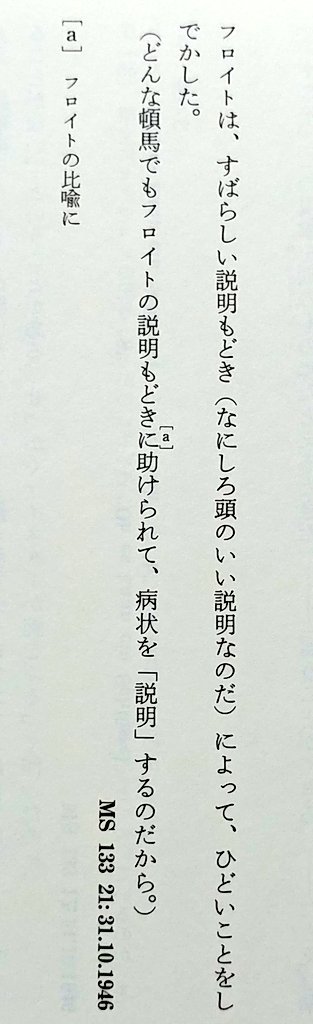 フロイトは、すばらしい説明もどき（なにしろ頭のいい説明なのだ）によって、ひどいことをし
でかした。
（どんな頓馬でもフロイトの説明もどきに[a]助けられて、病状を「説明」するのだから。）
MS 133 21: 31.10.1946
[a] フロイトの比喩に